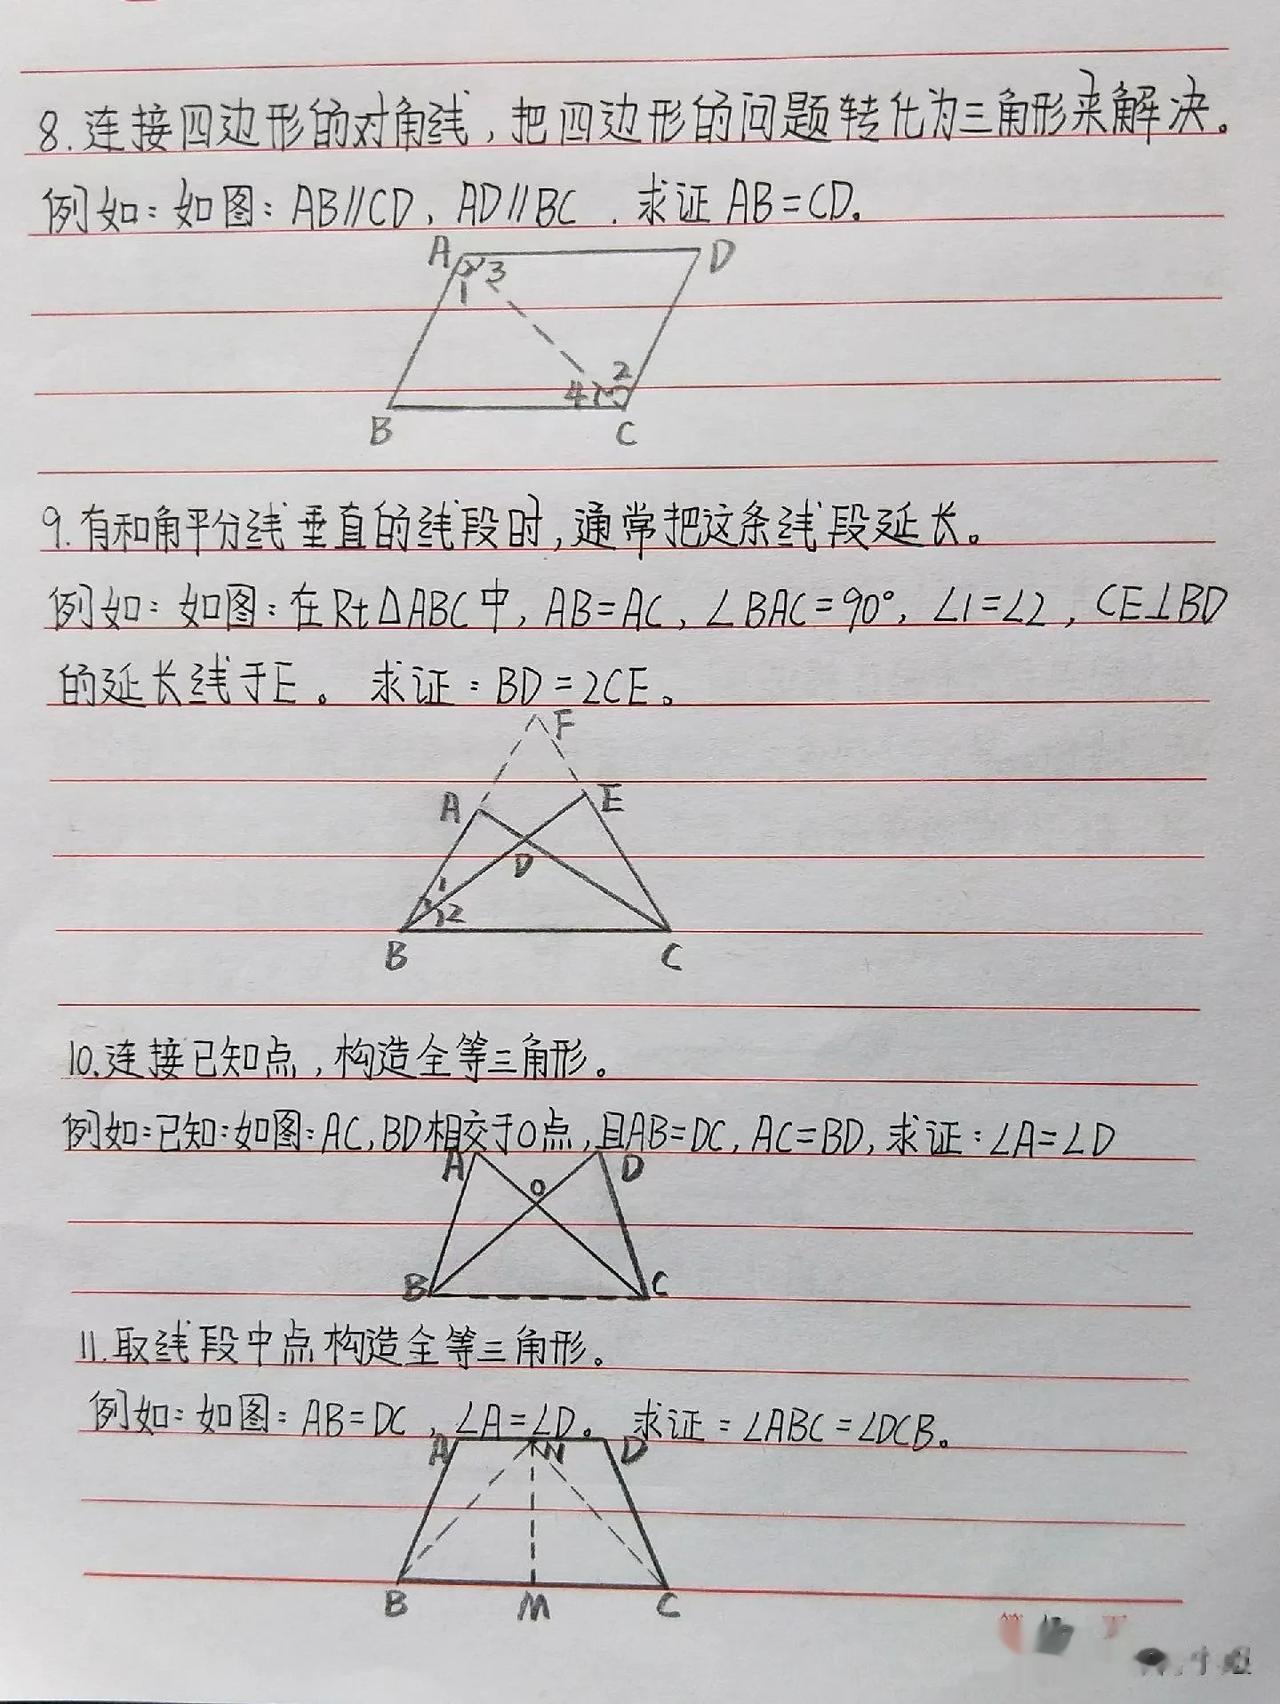 8.连接四边形的对角线，把四边形的问题转化为三角形来解决。
例如：如图：AB∥CD、AD∥BC．求证AB=CD。
A 3 D
1
2
4
B C
9.有和角平分线垂直的线段时，通常把这条线段延长。
例如：如图：在Rt△ABC中，AB=AC，∠BAC=90°，∠1=∠2，CE⊥BD
的延长线于E。求证：BD=2CE。
F
A E
D
1
2
B C
10.连接已知点，构造全等三角形。
例如：已知：如图：AC，BD相交于O点，且AB=DC，AC=BD，求证：∠A=∠D
A D
O
B C
11.取线段中点构造全等三角形。
例如：如图：AB=DC，∠A=∠D。求证：∠ABC=∠DCB。
A N D
B M C